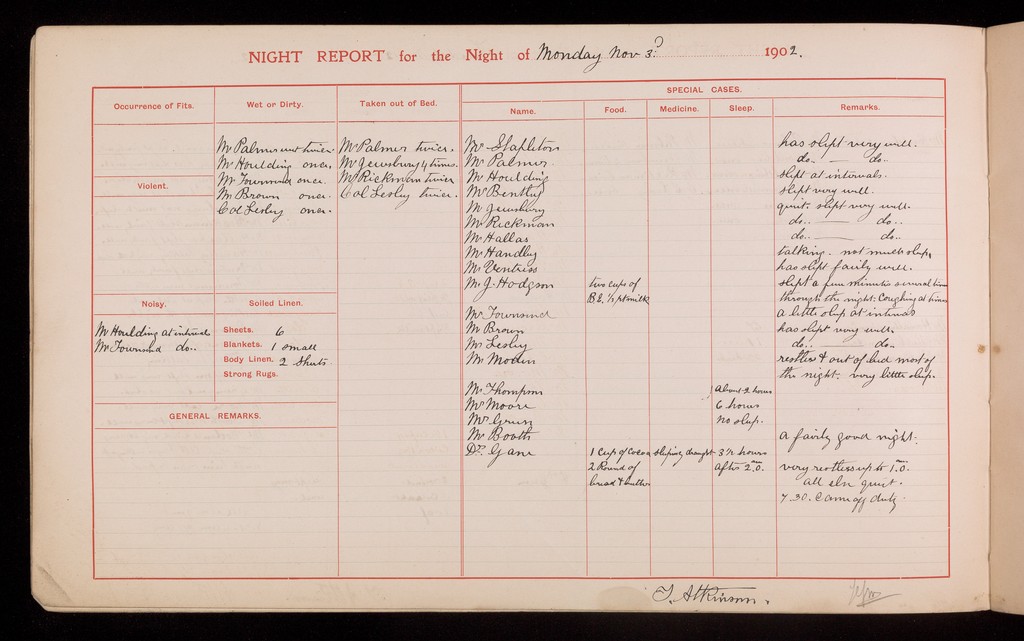 NIGHT REPORT for the Night of Monday Nov 3. 1902.
SPECIAL CASES.
Occurrence of Fits.
Wet or Dirty.
Taken out of Bed.
Name. Food. Medicine. Sleep. Remarks.
Mr Palmer wet twice
Mr Houlding once
Mr Townsend once.
Mr Brown once.
Col Lesley once.
Mr Palmer twice.
Mr Jewsbury 4 times.
Mr Rickman twice
Col Lesley twice.
Violent.
Noisy.
Mr Houlding at interval
Mr Townsend do..
Soiled Linen.
Sheets. 6
Blankets. 1 small
Body Linen. 2 Shirts.
Strong Rugs.
GENERAL REMARKS.
Mr Stapleton has slept very well.
Mr Palmer. do. — do..
Mr Houlding slept at intervals.
Mr Bentley slept very well.
Mr Jewsbury quiet. slept very well.
Mr Rickman do.. — do..
Mr Hallas do.. — do..
Mr Handley talking. not much sleep,
Mr Ventriss has slept fairly well.
Mr J. Hodgson two cups of slept a few minutes several times
B.E. ½ pt milk through the night. Coughing at times
Mr Townsend a little sleep at intervals
Mr Brown has slept very well.
Mr Lesley do.. — do..
Mr Moten restless & out of bed most of
the night. very little sleep.
Mr Thompson about 2 hours
Mr Moore 6 hours
Mr Green no sleep.
Mr Booth a fairly good night.
Dr. Gane 1 Cup of Cocoa sleeping draught 3½ hours very restless up to 1.0.
2 Round of after 2.0. all else quiet.
bread & butter 7.30. Came off duty.
T. Atkinson.